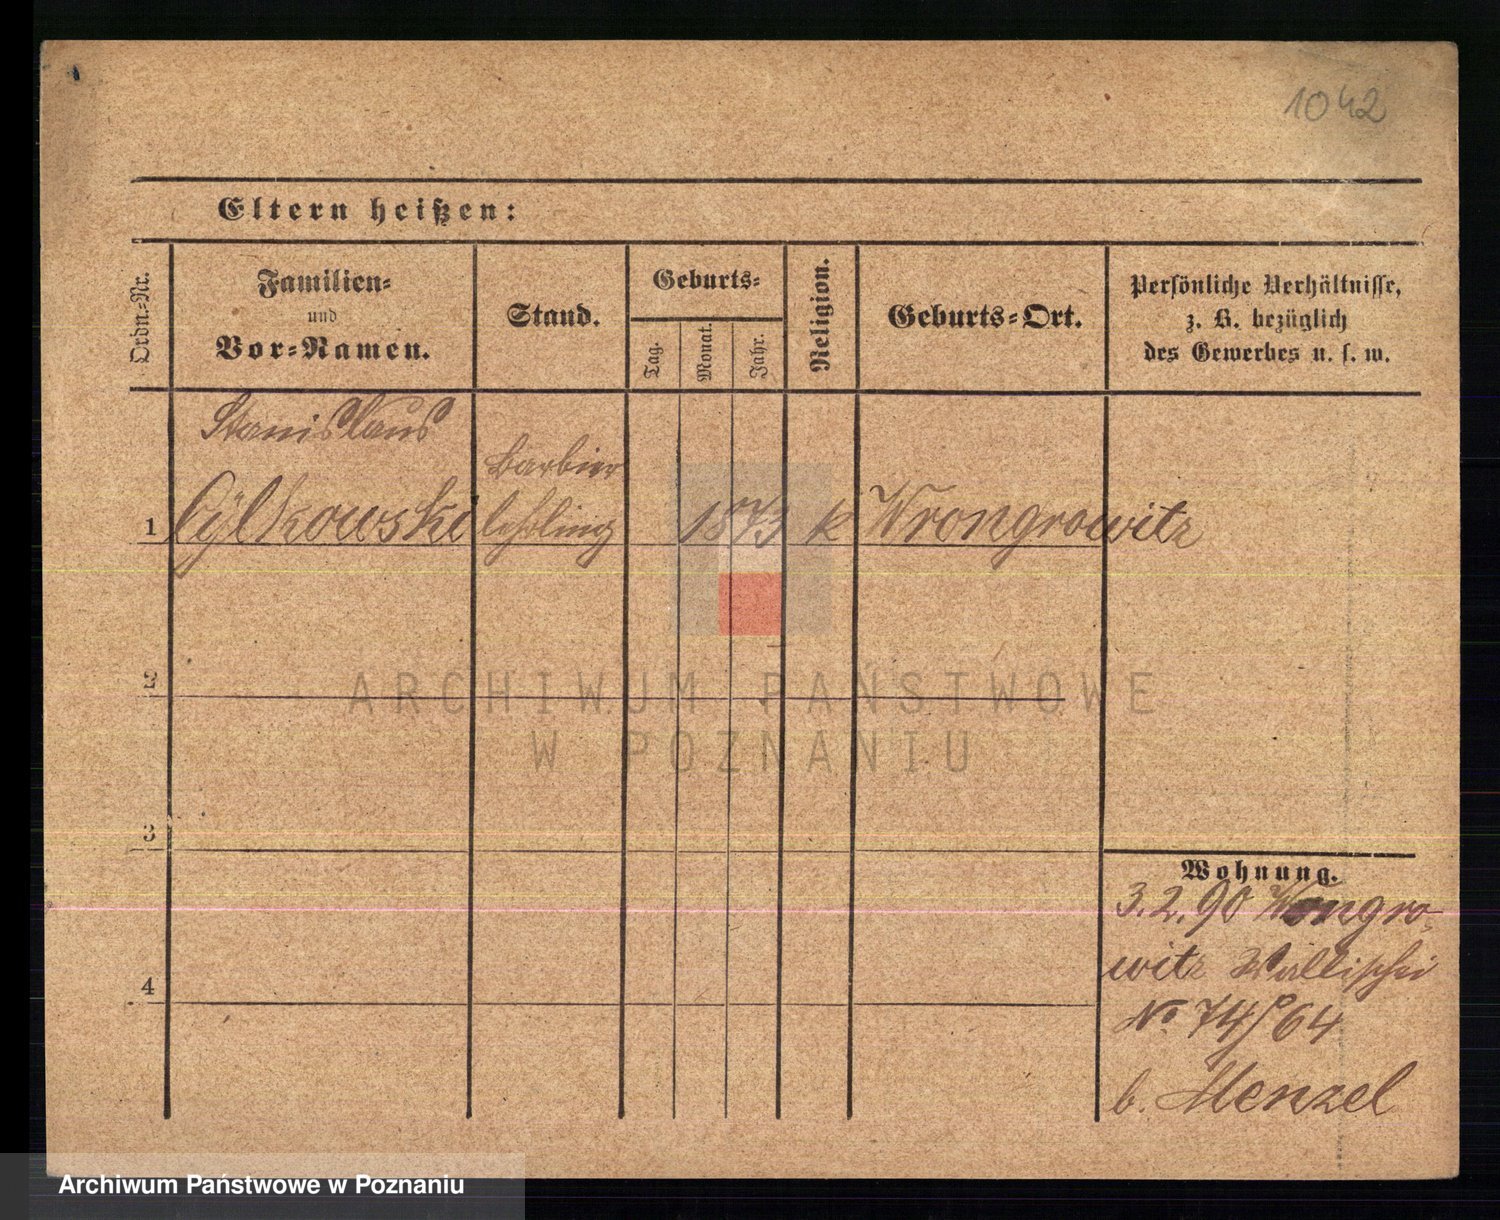 1042
Eltern heißen:
Ordn.-Nr.
Familien-
und
Vor-Namen.
Stand.
Geburts-
Tag.
Monat.
Jahr.
Religion.
Geburts-Ort.
Persönliche Verhältnisse,
z. B. bezüglich
des Gewerbes u. s. w.
Stanislaus
Barbier
1 Cylkowski lehrling 1873 k Wrongrowitz
2
ARCHIWUM PAŃSTWOWE
W POZNANIU
3
Wohnung.
3.2.90 Wongro-
witz Wallischei
4
No 74/64
b. Menzel
Archiwum Państwowe w Poznaniu